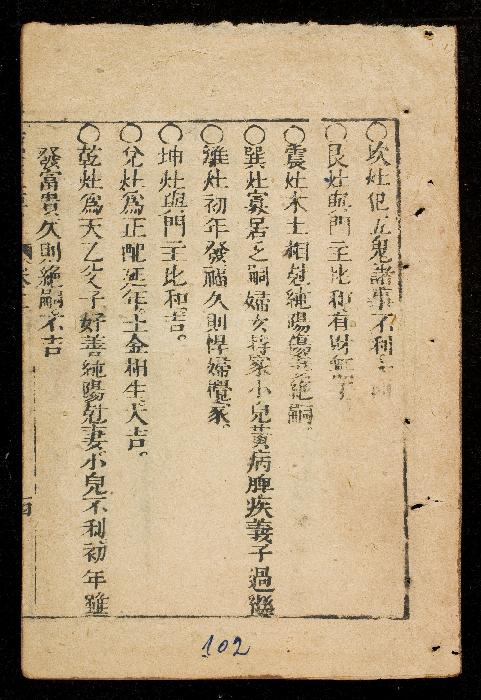 ○坎灶犯五鬼諸事不利
○艮灶與門主比和有財
○震灶木土相尅純陽傷妻絶嗣。
○巽灶寡居乏嗣婦女持家小兒黄病脾疾義子過繼
○離灶初年發福久則悍婦攪家。
○坤灶與門主比和吉。
○兌灶爲正配延年土金相生大吉。
○乾灶爲天乙父子好善純陽尅妻小兒不利初年雖
發富貴久則絶嗣不吉
102